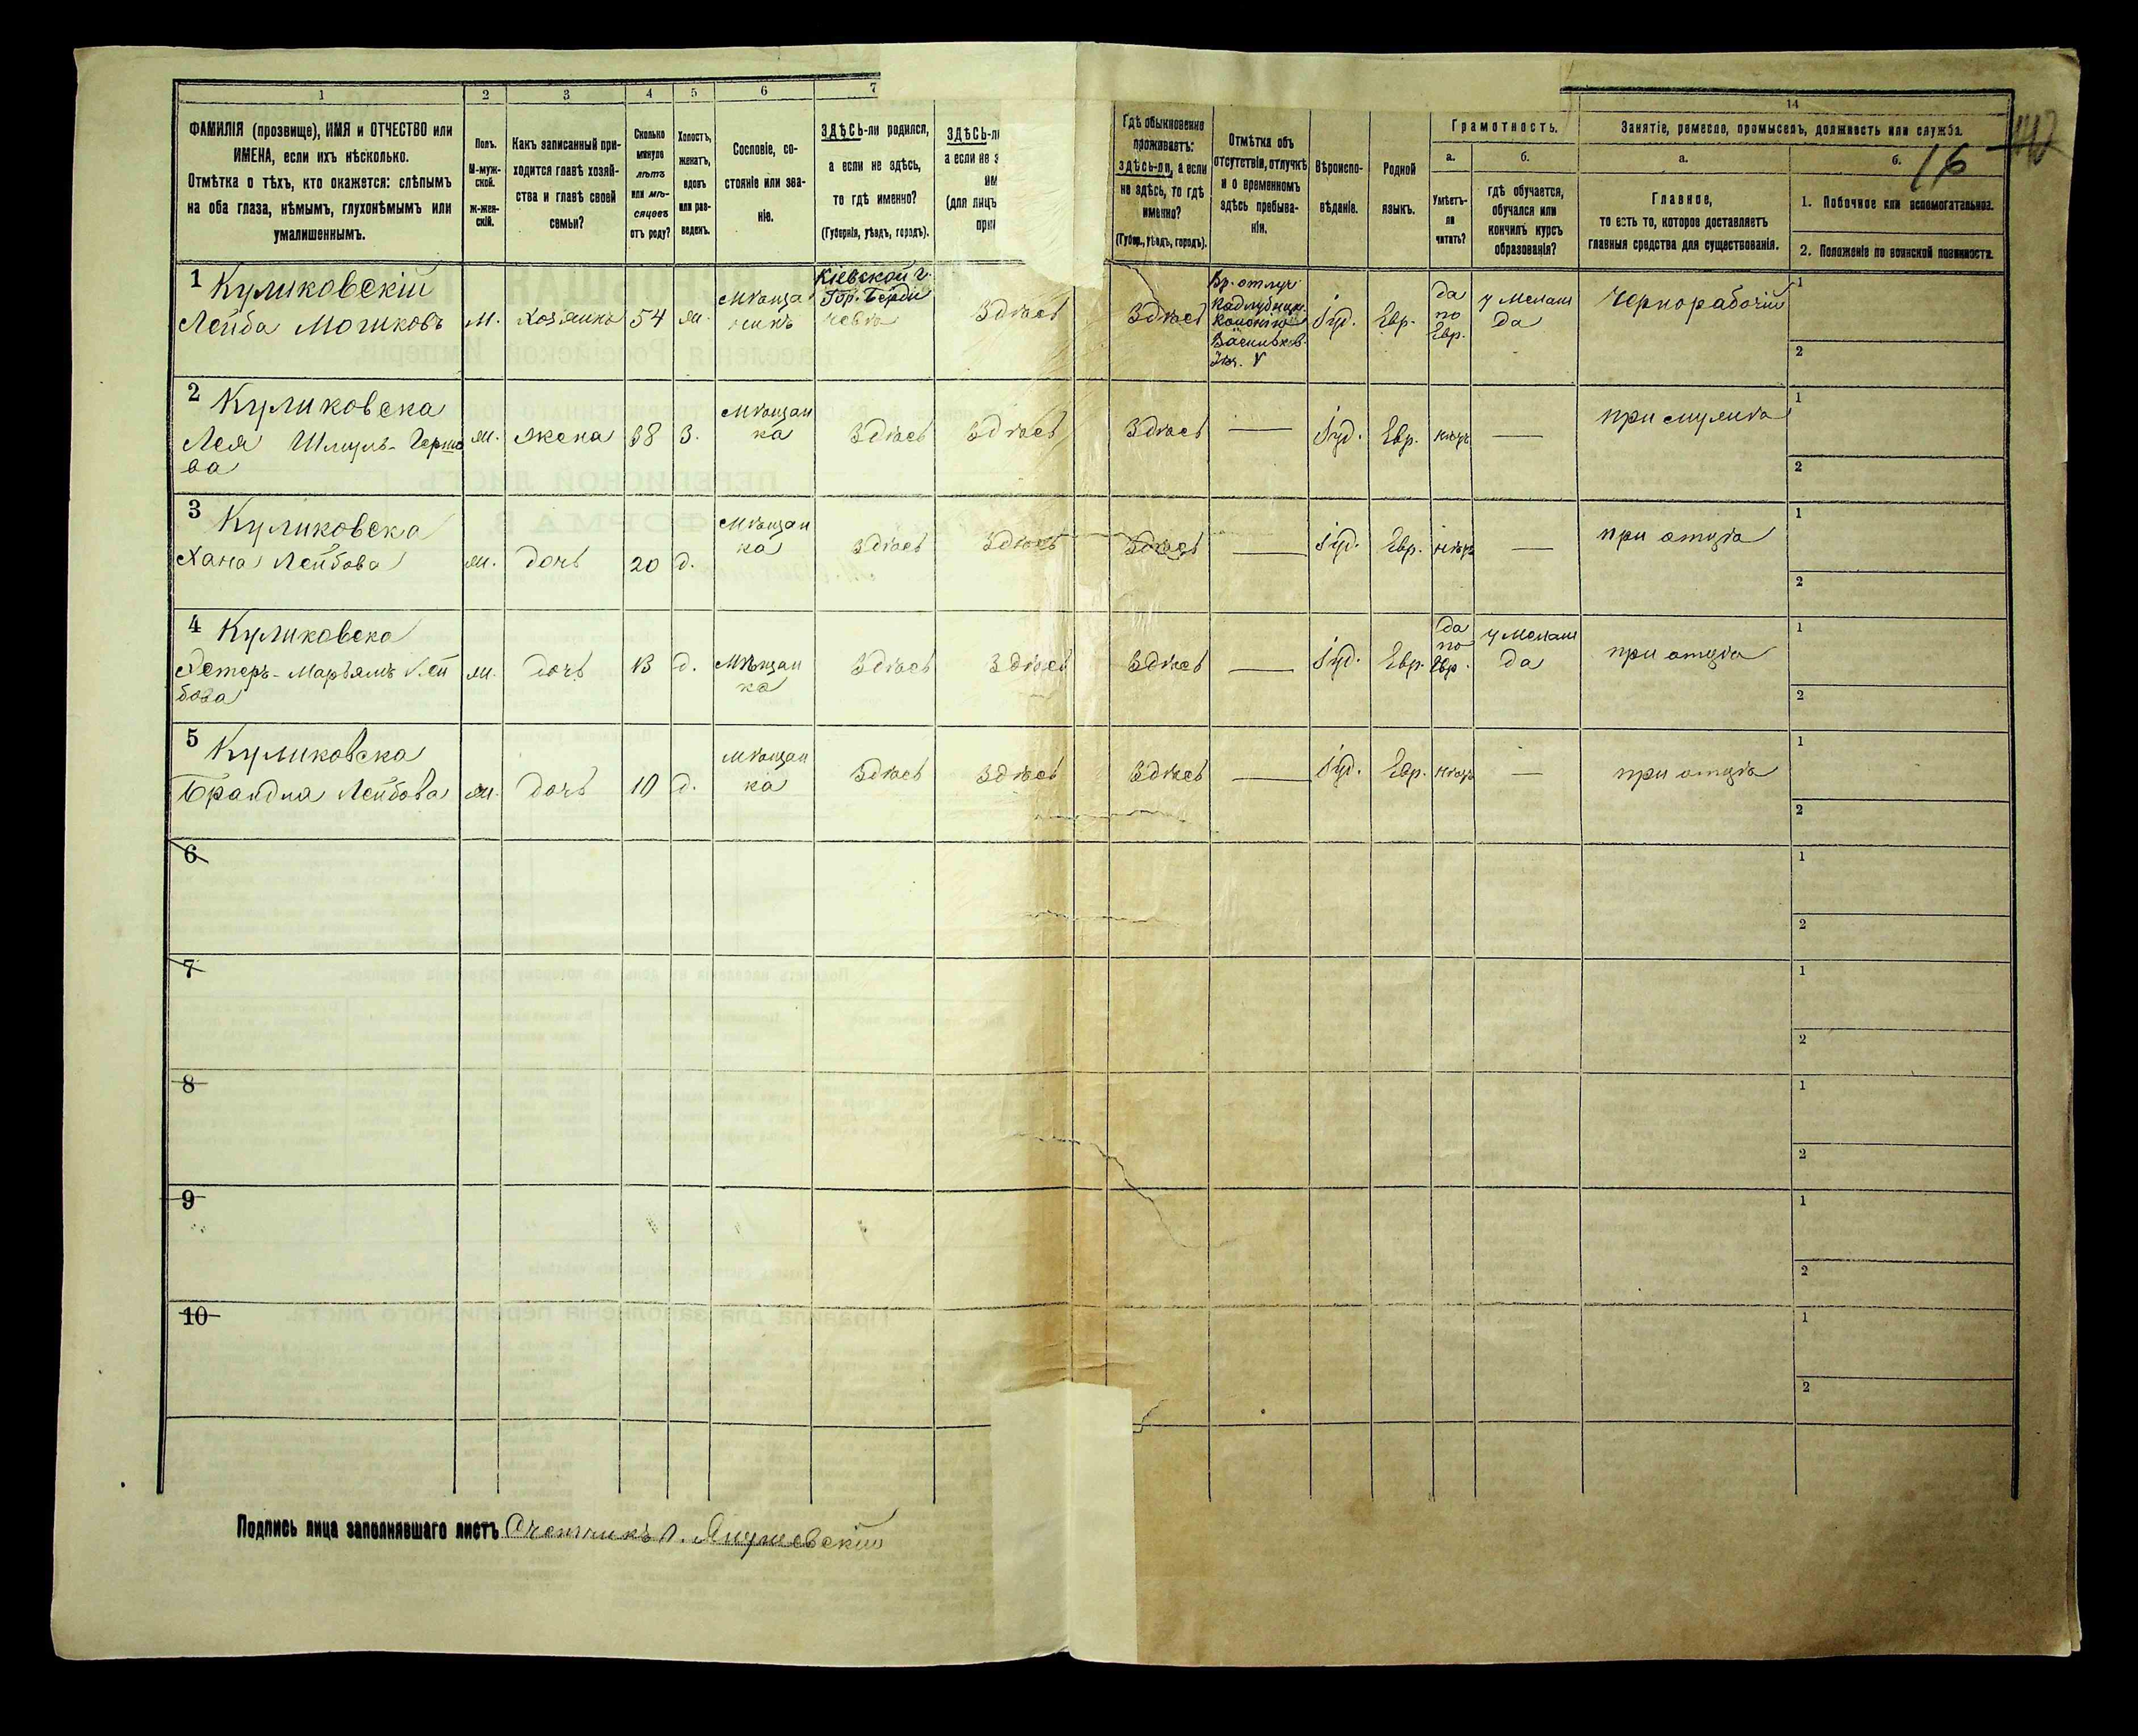 1
2
3
4
5
6
7
14
140
16
ФАМИЛІЯ (прозвище), ИМЯ и ОТЧЕСТВО или
ИМЕНА, если ихъ нѣсколько.
Отмѣтка о тѣхъ, кто окажется: слѣпымъ
на оба глаза, нѣмымъ, глухонѣмымъ или
умалишеннымъ.
Полъ.
М-муж-
ской.
Ж-жен-
скій.
Какъ записанный при-
ходится главѣ хозяй-
ства и главѣ своей
семьи?
Сколько
минуло
лѣтъ
или мѣ-
сяцевъ
отъ роду?
Холостъ,
женатъ,
вдовъ
или раз-
веденъ.
Сословіе, со-
стояніе или зва-
ніе.
ЗДѢСЬ-ли родился,
а если не здѣсь,
то гдѣ именно?
(Губернія, уѣздъ, городъ).
ЗДѢСЬ-ли
а если не з
(для лицъ
Гдѣ обыкновенно
проживаетъ:
здѣсь-ли, а если
не здѣсь, то гдѣ
именно?
(Губер., уѣздъ, городъ).
Отмѣтка объ
отсутствіи, отлучкѣ
и о временномъ
здѣсь пребыва-
ніи.
Вѣроиспо-
вѣданіе.
Родной
языкъ.
Грамотность.
а.
Умѣетъ-
ли
читать?
б.
гдѣ обучается,
обучался или
кончилъ курсъ
образованія?
Занятіе, ремесло, промыселъ, должность или служба.
а.
Главное,
то есть то, которое доставляетъ
главныя средства для существованія.
б.
1. Побочное или вспомогательное.
2. Положеніе по воинской повинности.
1 Куликовскій
Лейба Мошковъ
м.
хозяинъ
54
ж.
мѣща
нинъ
Кіевской г.
Гор. Берди
чевѣ
Здѣсь
Здѣсь
Вр. отлуч
Кадлубицк.
Колонію
Васильков.
Уѣз. V
Іуд.
Евр.
да
по
Евр.
у Мелам
да
Чернорабочій
1
2
2 Куликовска
Лея Шмуль-Герш
ва
ж.
жена
38
З.
мѣщан
ка
Здѣсь
Здѣсь
Здѣсь
—
Іуд.
Евр.
нѣтъ
—
при мужѣ
1
2
3 Куликовска
Хана Лейбова
ж.
дочь
20
д.
мѣщан
ка
Здѣсь
Здѣсь
Здѣсь
—
Іуд.
Евр.
нѣтъ
—
при отцѣ
1
2
4 Куликовска
Эстеръ-Марьямъ Лей
бова
ж.
дочь
13
д.
мѣщан
ка
Здѣсь
Здѣсь
Здѣсь
—
Іуд.
Евр.
да
по
Евр.
у Мелам
да
при отцѣ
1
2
5 Куликовска
Брандля Лейбова
ж.
дочь
10
д.
мѣщан
ка
Здѣсь
Здѣсь
Здѣсь
—
Іуд.
Евр.
нѣтъ
—
при отцѣ
1
2
6
1
2
7
1
2
8
1
2
9
1
2
10
1
2
Подпись лица заполнявшаго листъ Счетчикъ